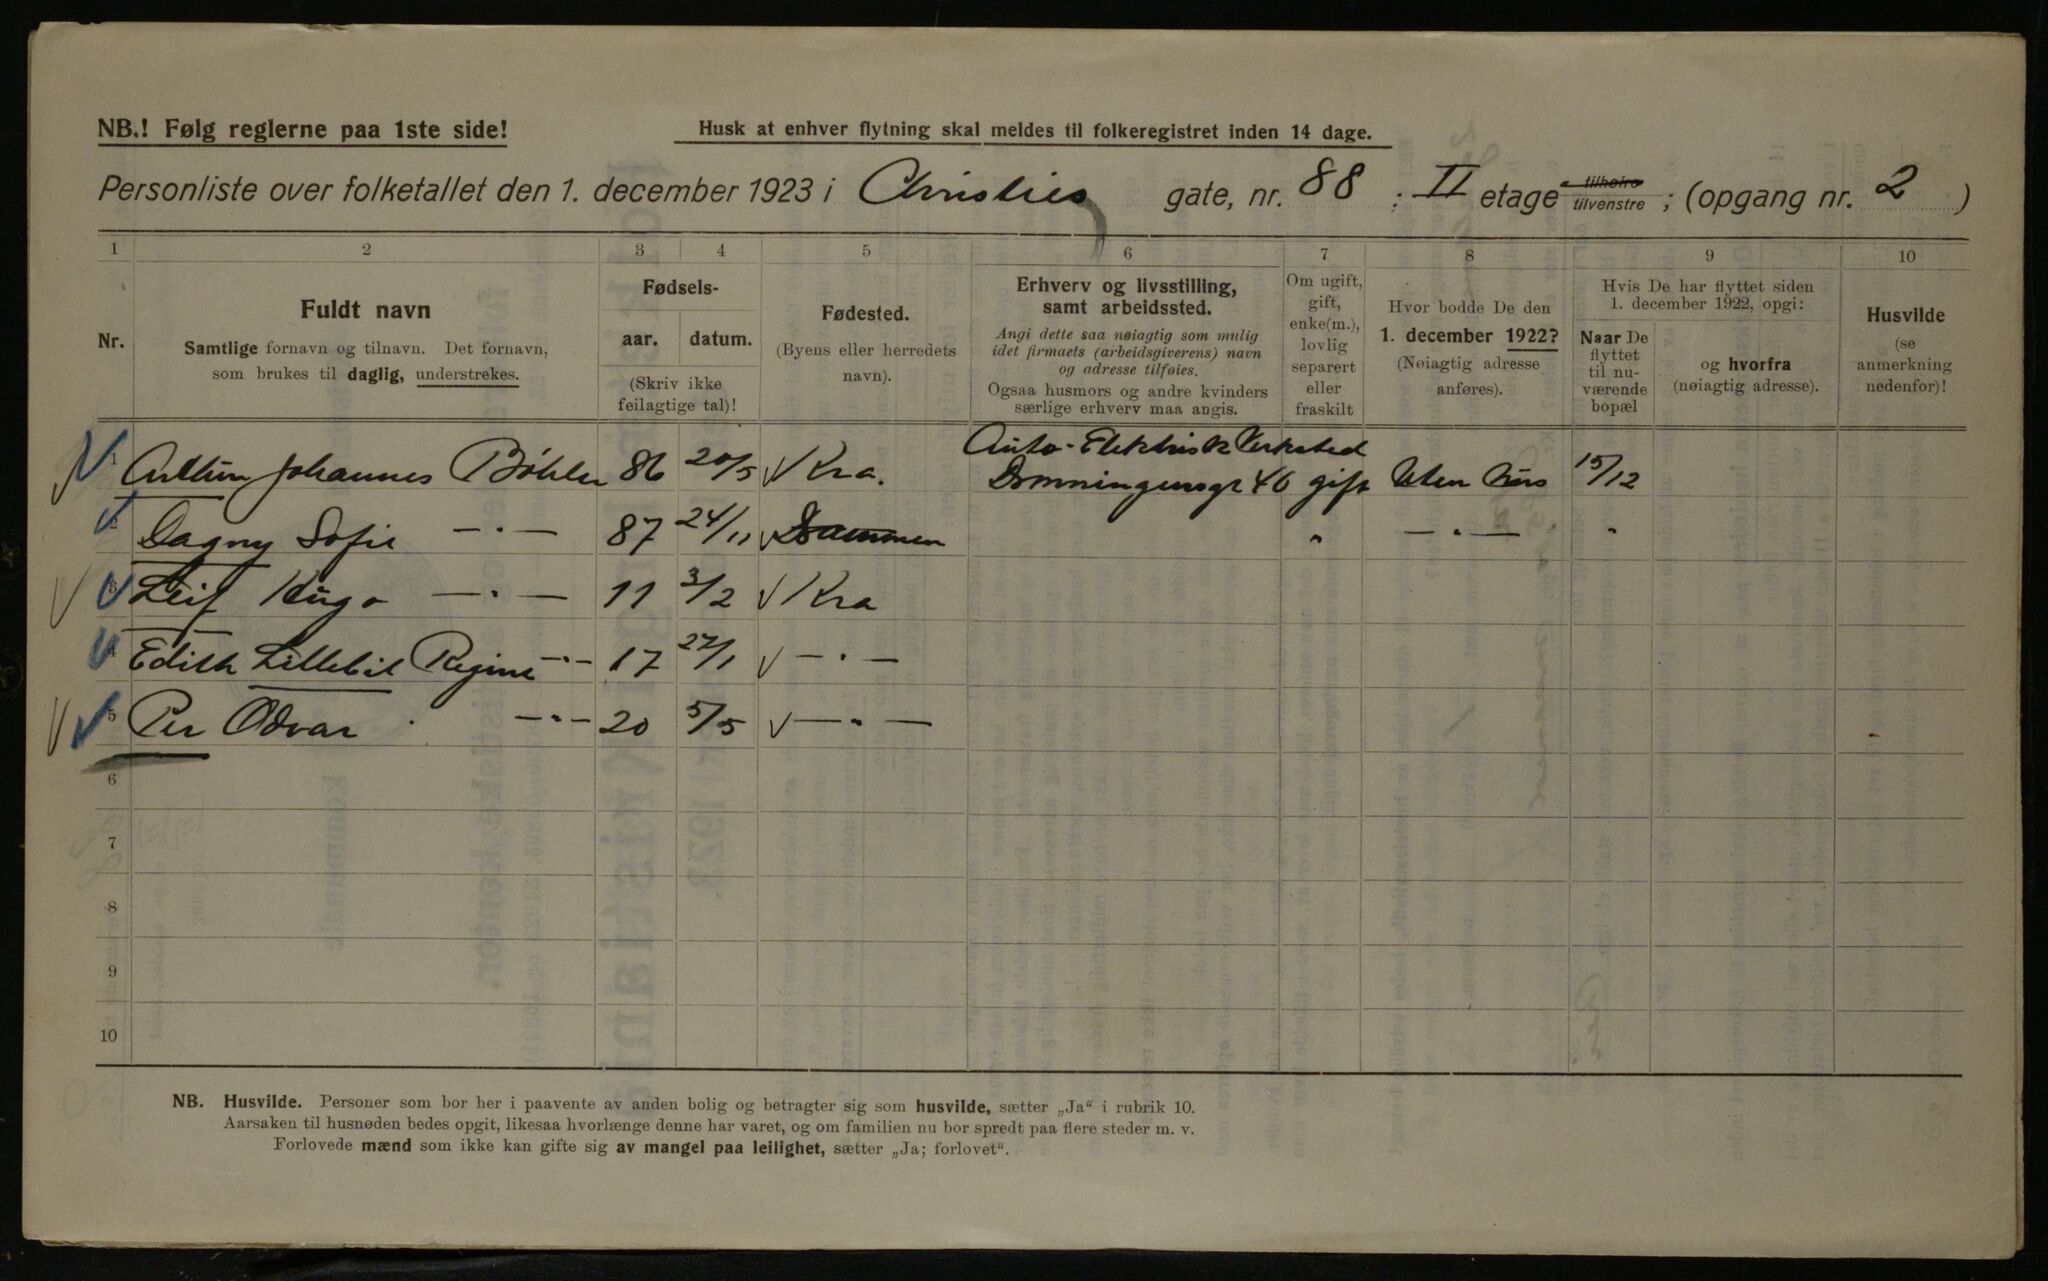 NB.! Følg reglerne paa 1ste side!
Husk at enhver flytning skal meldes til folkeregistret inden 14 dage.
Personliste over folketallet den 1. december 1923 i Christies gate, nr. 88 ; II etage tilhøire tilvenstre ; (opgang nr. 2 )
1 2 3 4 5 6 7 8 9 10
Nr.
Fuldt navn
Samtlige fornavn og tilnavn. Det fornavn,
som brukes til daglig, understrekes.
Fødsels-
aar. datum.
(Skriv ikke
feilagtige tal)!
Fødested.
(Byens eller herredets
navn).
Erhverv og livsstilling,
samt arbeidssted.
Angi dette saa nøiagtig som mulig
idet firmaets (arbeidsgiverens) navn
og adresse tilføies.
Ogsaa husmors og andre kvinders
særlige erhverv maa angis.
Om ugift,
gift,
enke(m.),
lovlig
separert
eller
fraskilt
Hvor bodde De den
1. december 1922?
(Nøiagtig adresse
anføres).
Hvis De har flyttet siden
1. december 1922, opgi:
Naar De
flyttet
til nu-
værende
bopæl
og hvorfra
(nøiagtig adresse).
Husvilde
(se
anmerkning
nedenfor)!
Auto-Elektrisk Verksted
1 Arthur Johannes Böhler 86 20/5 Kra. Dronningensgt 40 gift Uten hus 15/12
2 Dagny Sofie —"— 87 24/11 Drammen " —"— "
3 Leif Hugo —"— 11 3/2 Kra
4 Edith Lillebil Regine —"— 17 27/1 —"—
5 Per Odvar —"— 20 5/5 —"—
6
7
8
9
10
NB. Husvilde. Personer som bor her i paavente av anden bolig og betragter sig som husvilde, sætter „Ja“ i rubrik 10.
Aarsaken til husnøden bedes opgit, likesaa hvorlænge denne har varet, og om familien nu bor spredt paa flere steder m. v.
Forlovede mænd som ikke kan gifte sig av mangel paa leilighet, sætter „Ja; forlovet“.